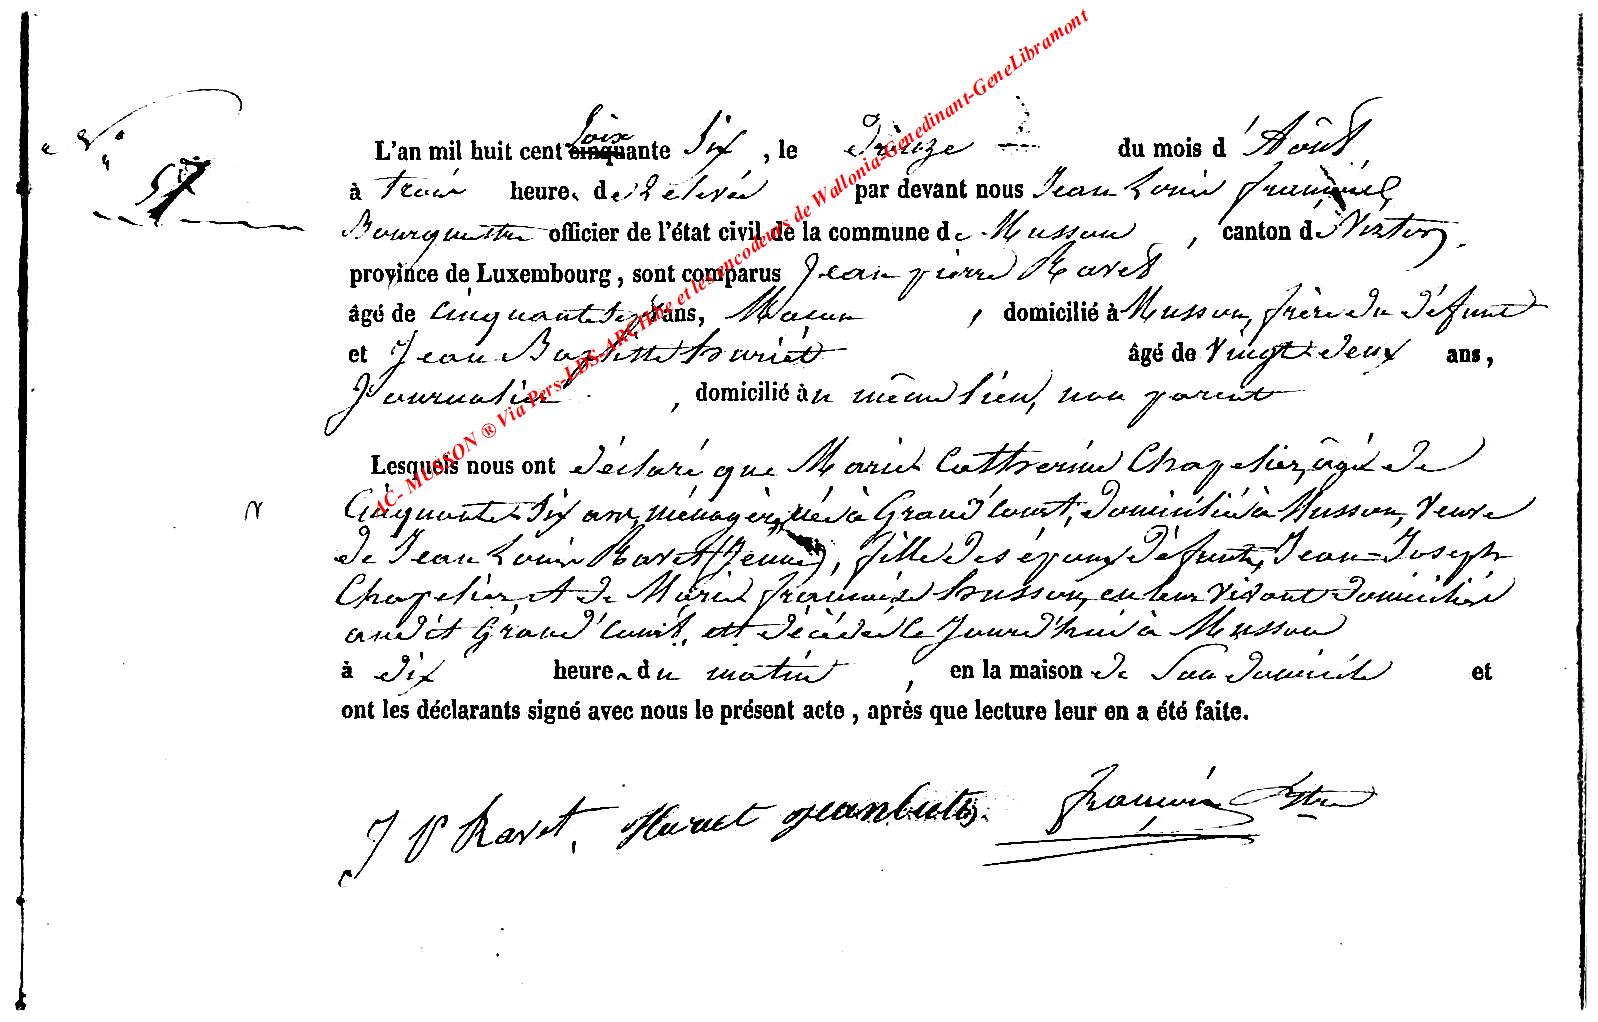 N°
57
L'an mil huit cent soixante Six, le treize du mois d'Août
à trois heure. de Relevée par devant nous Jean Louis François
Bourguestre officier de l'état civil de la commune de Musson, canton de Virton,
province de Luxembourg, sont comparus Jean pierre Ravet
âgé de cinquante six ans, Maçon, domicilié à Musson, frère du défunt
et Jean Baptiste âgé de Vingt deux ans,
Journalier, domicilié au même lieu, non parent
Lesquels nous ont déclaré que Marie Catherine Chapelier, âgée de
Cinquante Six ans, ménagère, née à Grand'court, domiciliée à Musson, Veuve
de Jean Louis Ravet (Jeune), fille des époux défunts, Jean-Joseph
Chapelier et de Marie françoise husson, en leur vivant domiciliés
audit Grand'court, est décédée le Jourd'hui à Musson
à dix heure du matin, en la maison de Son domicile et
ont les déclarants signé avec nous le présent acte, après que lecture leur en a été faite.
J P Ravet,
AC- MUSSON ® Via Pers-LDS-ARCHive et les encodeurs de Wallonia-Genedinant-GeneLibramont